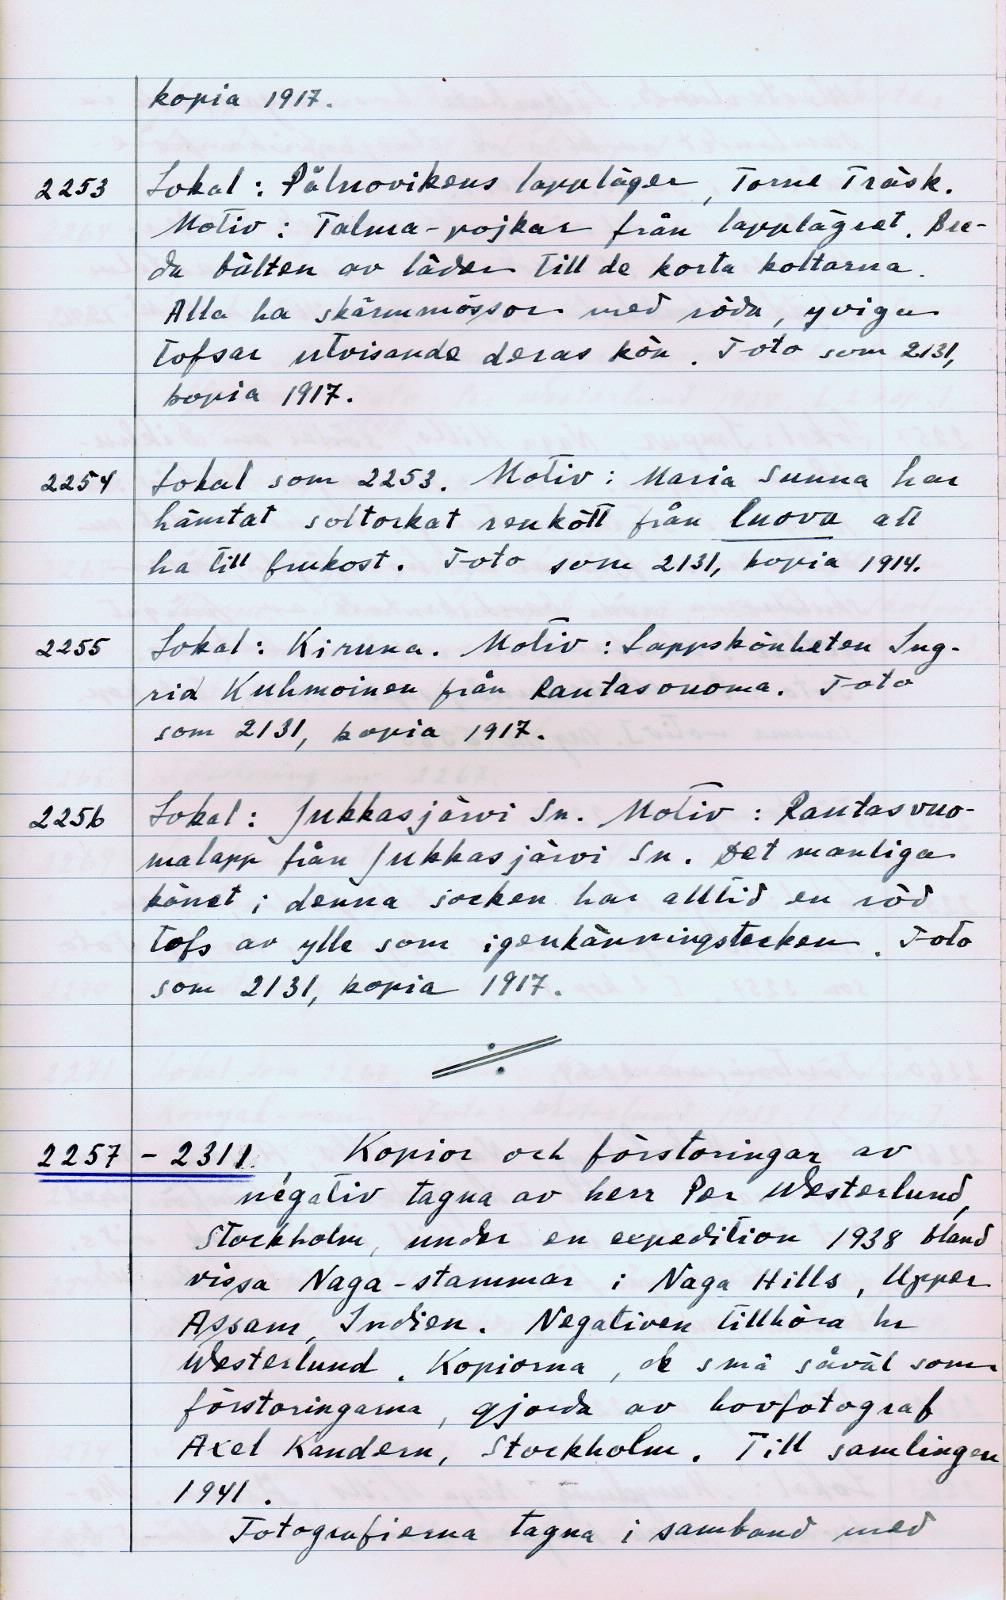 kopia 1917.
2253 Lokal: Pålnovikens lappläger, Torne Träsk.
Motiv: Talma-pojkar från lapplägret. Bre-
da bälten av läder till de korta koltarna.
Alla ha skärmmössor med röda, yviga
tofsar utvisande deras kön. Foto som 2131,
kopia 1917.
2254 Lokal som 2253. Motiv: Maria Sunna har
hämtat soltorkat renkött från luova att
ha till frukost. Foto som 2131, kopia 1914.
2255 Lokal: Kiruna. Motiv: Lappskönheten Ing-
rid Kuhmoinen från Rautasvuoma. Foto
som 2131, kopia 1917.
2256 Lokal: Jukkasjärvi Sn. Motiv: Rautasvuo-
malapp från Jukkasjärvi Sn. Det manliga
könet i denna socken har alltid en röd
tofs av ylle som igenkänningstecken. Foto
som 2131, kopia 1917.
2257 - 2311. Kopior och förstoringar av
negativ tagna av herr Per Westerlund,
Stockholm, under en expedition 1938 bland
vissa Naga-stammar i Naga Hills, Upper
Assam, Indien. Negativen tillhöra hr
Westerlund. Kopiorna, de små såväl som
förstoringarna, gjorda av hovfotograf
Axel Kandern, Stockholm. Till samlingen
1941.
Fotografierna tagna i samband med